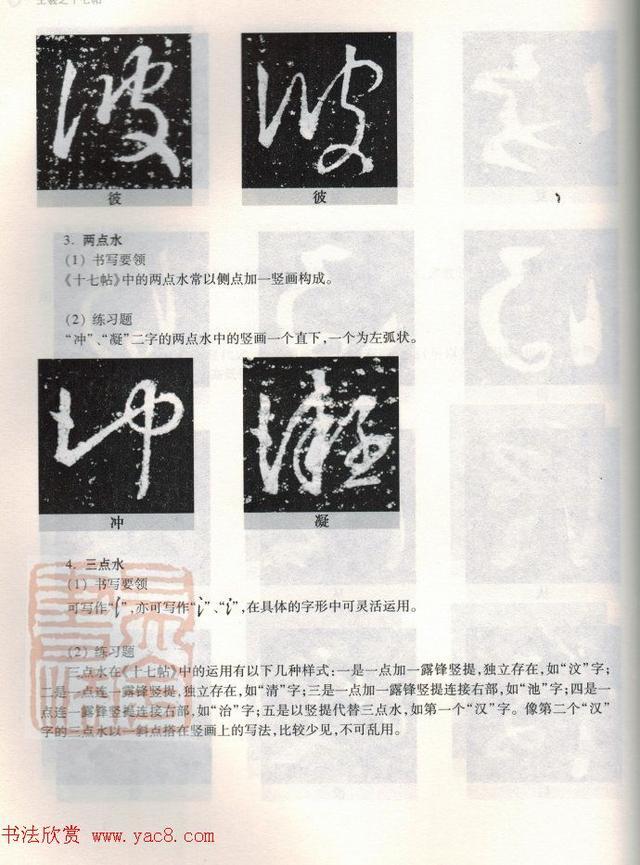 王羲之十七帖
彼 彼
3. 两点水
(1) 书写要领
《十七帖》中的两点水常以侧点加一竖画构成。
(2) 练习题
“冲”、“凝”二字的两点水中的竖画一个直下，一个为左弧状。
冲 凝
4. 三点水
(1) 书写要领
可写作“”，亦可写作“”、“”，在具体的字形中可灵活运用。
(2) 练习题
三点水在《十七帖》中的运用有以下几种样式：一是一点加一露锋竖提，独立存在，如“汶”字；
二是一点连一露锋竖提，独立存在，如“清”字；三是一点加一露锋竖提连接右部，如“池”字；四是一
点连一露锋竖提连接右部，如“治”字；五是以竖提代替三点水，如第一个“汉”字。像第二个“汉”
字的三点水以一斜点搭在竖画上的写法，比较少见，不可乱用。
书法欣赏 www.yac8.com